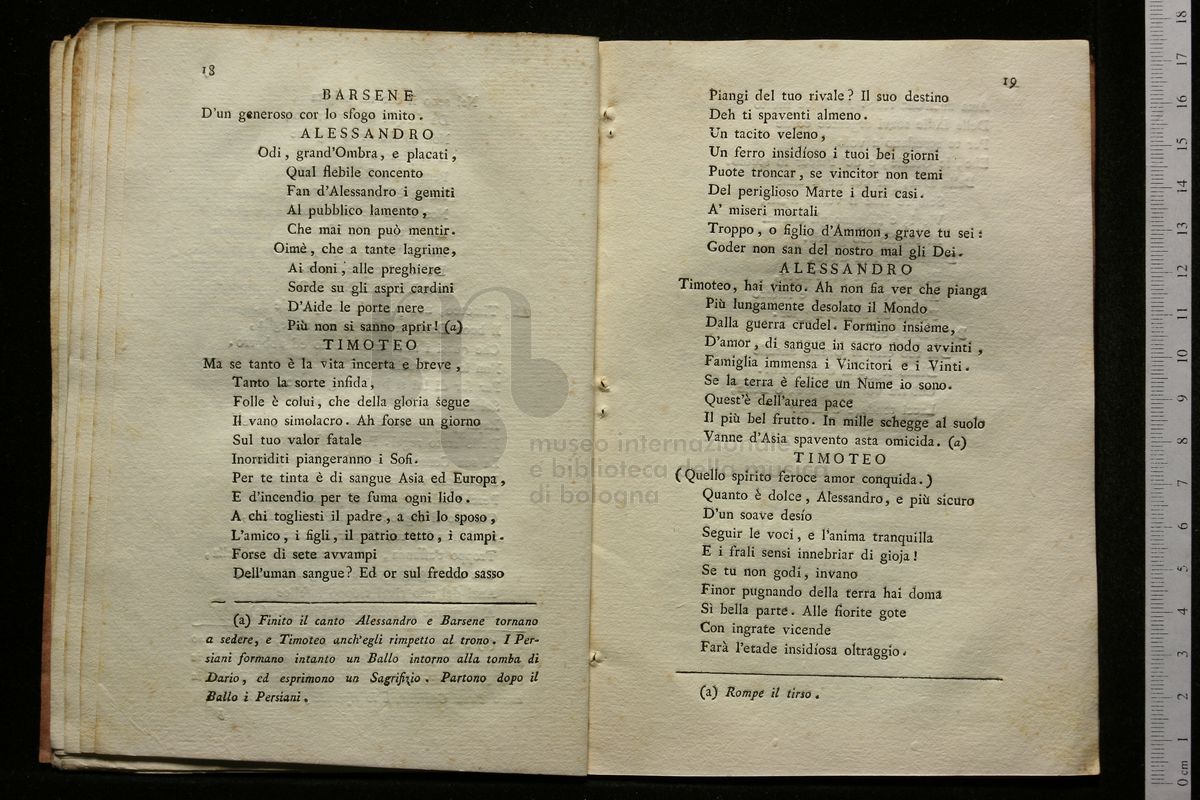 18
BARSENE
D'un generoso cor lo sfogo imito.
ALESSANDRO
Odi, grand'Ombra, e placati,
Qual flebile concento
Fan d'Alessandro i gemiti
Al pubblico lamento,
Che mai non può mentir.
Oimè, che a tante lagrime,
Ai doni, alle preghiere
Sorde su gli aspri cardini
D'Aide le porte nere
Più non si sanno aprir! (a)
TIMOTEO
Ma se tanto è la vita incerta e breve,
Tanto la sorte infida,
Folle è colui, che della gloria segue
Il vano simolacro. Ah forse un giorno
Sul tuo valor fatale
Inorriditi piangeranno i Sofi.
Per te tinta è di sangue Asia ed Europa,
E d'incendio per te fuma ogni lido.
A chi togliesti il padre, a chi lo sposo,
L'amico, i figli, il patrio tetto, i campi.
Forse di sete avvampi
Dell'uman sangue? Ed or sul freddo sasso
(a) Finito il canto Alessandro e Barsene tornano
a sedere, e Timoteo anch'egli rimpetto al trono. I Per-
siani formano intanto un Ballo intorno alla tomba di
Dario, ed esprimono un Sagrifizio. Partono dopo il
Ballo i Persiani.
19
Piangi del tuo rivale? Il suo destino
Deh ti spaventi almeno.
Un tacito veleno,
Un ferro insidioso i tuoi bei giorni
Puote troncar, se vincitor non temi
Del periglioso Marte i duri casi.
A' miseri mortali
Troppo, o figlio d'Ammon, grave tu sei:
Goder non san del nostro mal gli Dei.
ALESSANDRO
Timoteo, hai vinto. Ah non fia ver che pianga
Più lungamente desolato il Mondo
Dalla guerra crudel. Formino insieme,
D'amor, di sangue in sacro nodo avvinti,
Famiglia immensa i Vincitori e i Vinti.
Se la terra è felice un Nume io sono.
Quest'è dell'aurea pace
Il più bel frutto. In mille schegge al suolo
Vanne d'Asia spavento asta omicida. (a)
TIMOTEO
(Quello spirito feroce amor conquida.)
Quanto è dolce, Alessandro, e più sicuro
D'un soave desío
Seguir le voci, e l'anima tranquilla
E i frali sensi innebriar di gioja!
Se tu non godi, invano
Finor pugnando della terra hai doma
Sì bella parte. Alle fiorite gote
Con ingrate vicende
Farà l'etade insidíosa oltraggio.
(a) Rompe il tirso.
museo internazionale
e biblioteca della musica
di bologna
0 cm 1 2 3 4 5 6 7 8 9 10 11 12 13 14 15 16 17 18